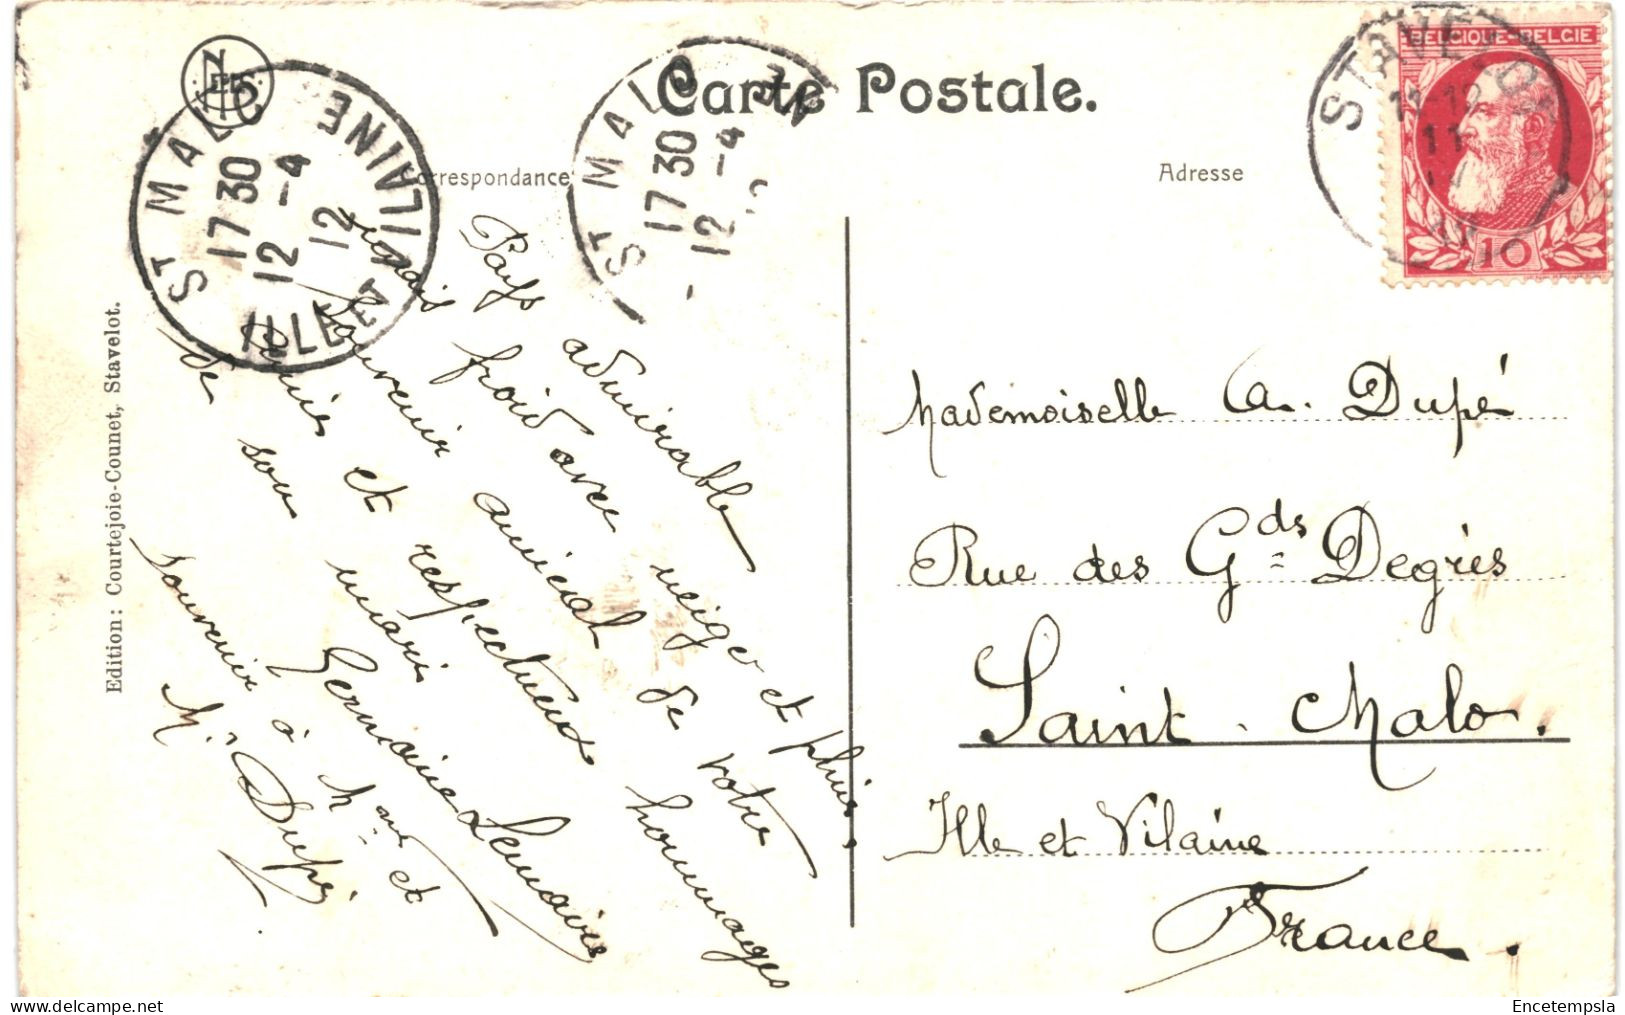 Carte Postale.
Correspondance
Adresse
BELGIQUE-BELGIE
10
STAVELOT
11-12
11
ST MALO
ILLE & VILAINE
17 30
12 - 4
12
ST MALO
NE
17 30
12 - 4
Pays admirable
mais froid avec neige et pluie.
Souvenir amical de votre
amie et respectueux hommages
de son mari
Germaine Lemoine
souvenir à Mme et
Mr Dupé
Mademoiselle A. Dupé
Rue des Gds Degrés
Saint-Malo.
Ille et Vilaine
France.
Edition: Courtejoie-Counet, Stavelot.
Encetempsla